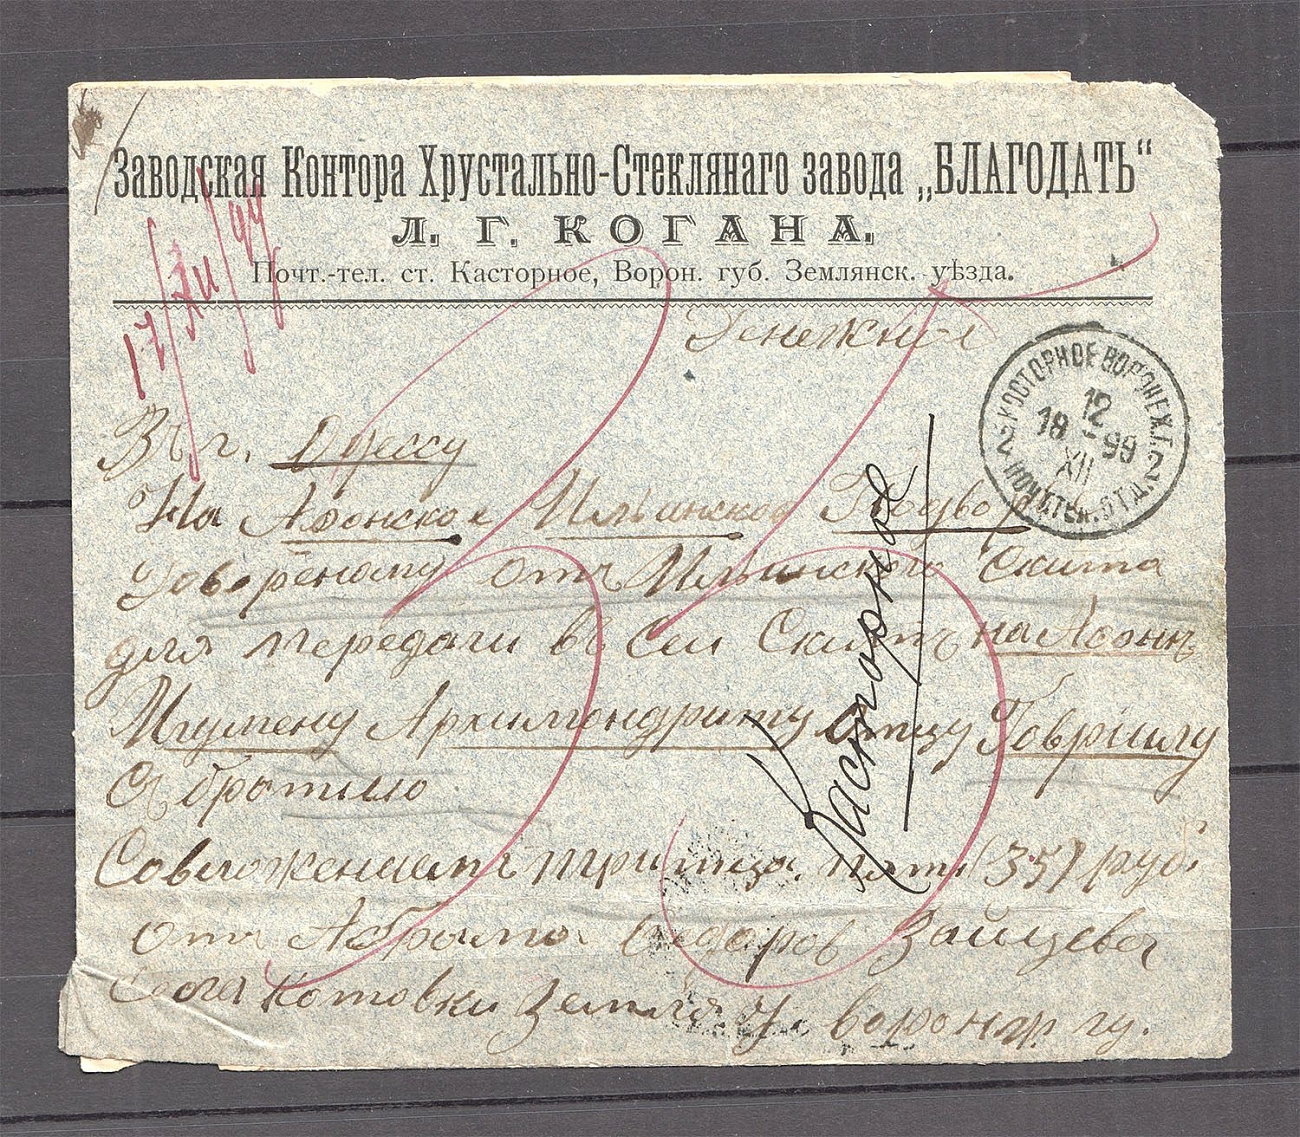 Заводская Контора Хрустально-Стеклянаго завода „БЛАГОДАТЬ“
Л. Г. КОГАНА.
Почт.-тел. ст. Касторное, Ворон. губ. Землянск. уѣзда.
17/XII/99
Денежное
КАСТОРНОЕ ВОРОНЕЖ.Г.
12
18 - 99
XII
2 ПОЧ.ТЕЛ. 2
Въ г. Одессу
На Афонское Ильинское Подвор
доверѣному отъ Ильинскаго Скита
для передачи въ сеи Скитъ на Афонъ
Игумену Архимондриту Отцу Говриилу
Съ братию
Совложениемъ тритцать пять (35) руб.
отъ Абрама Сидоров Зайцева
Села Котовки Земля У воронеж гу.
Касторное
35